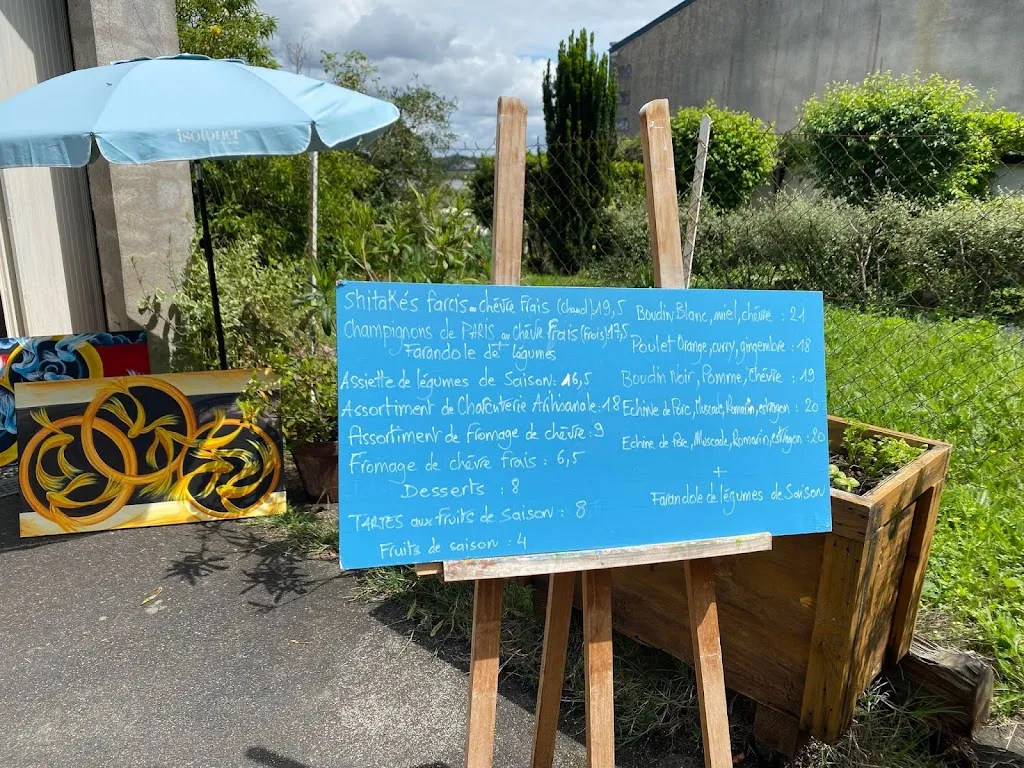 isotoner
Shitakés farcis au chèvre Frais (Chaud) 19,5
Champignons de PARIS au Chèvre Frais (Frais) 17,5
Farandole de légumes
Assiette de légumes de Saison : 16,5
Assortiment de Charcuterie Artisanale : 18
Assortiment de Fromage de chèvre : 9
Fromage de chèvre frais : 6,5
Desserts : 8
TARTES aux fruits de saison : 8
Fruits de saison : 4
Boudin Blanc, miel, chèvre : 21
Poulet Orange, curry, gingembre : 18
Boudin Noir, Pomme, Chèvre : 19
Echine de Porc, Muscade, Romarin, estragon : 20
Echine de Porc, Muscade, Romarin, estragon : 20
+
Farandole de légumes de Saison